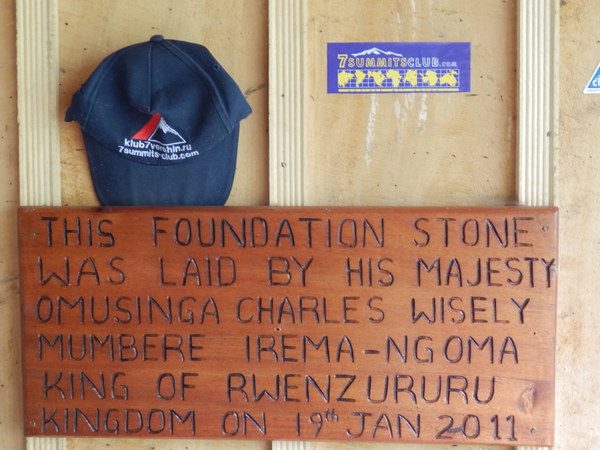 7SUMMITSCLUB.com
klub7vershin.ru
7summits-club.com
THIS FOUNDATION STONE
WAS LAID BY HIS MAJESTY
OMUSINGA CHARLES WISELY
MUMBERE IREMA-NGOMA
KING OF RWENZURURU
KINGDOM ON 19th JAN 2011